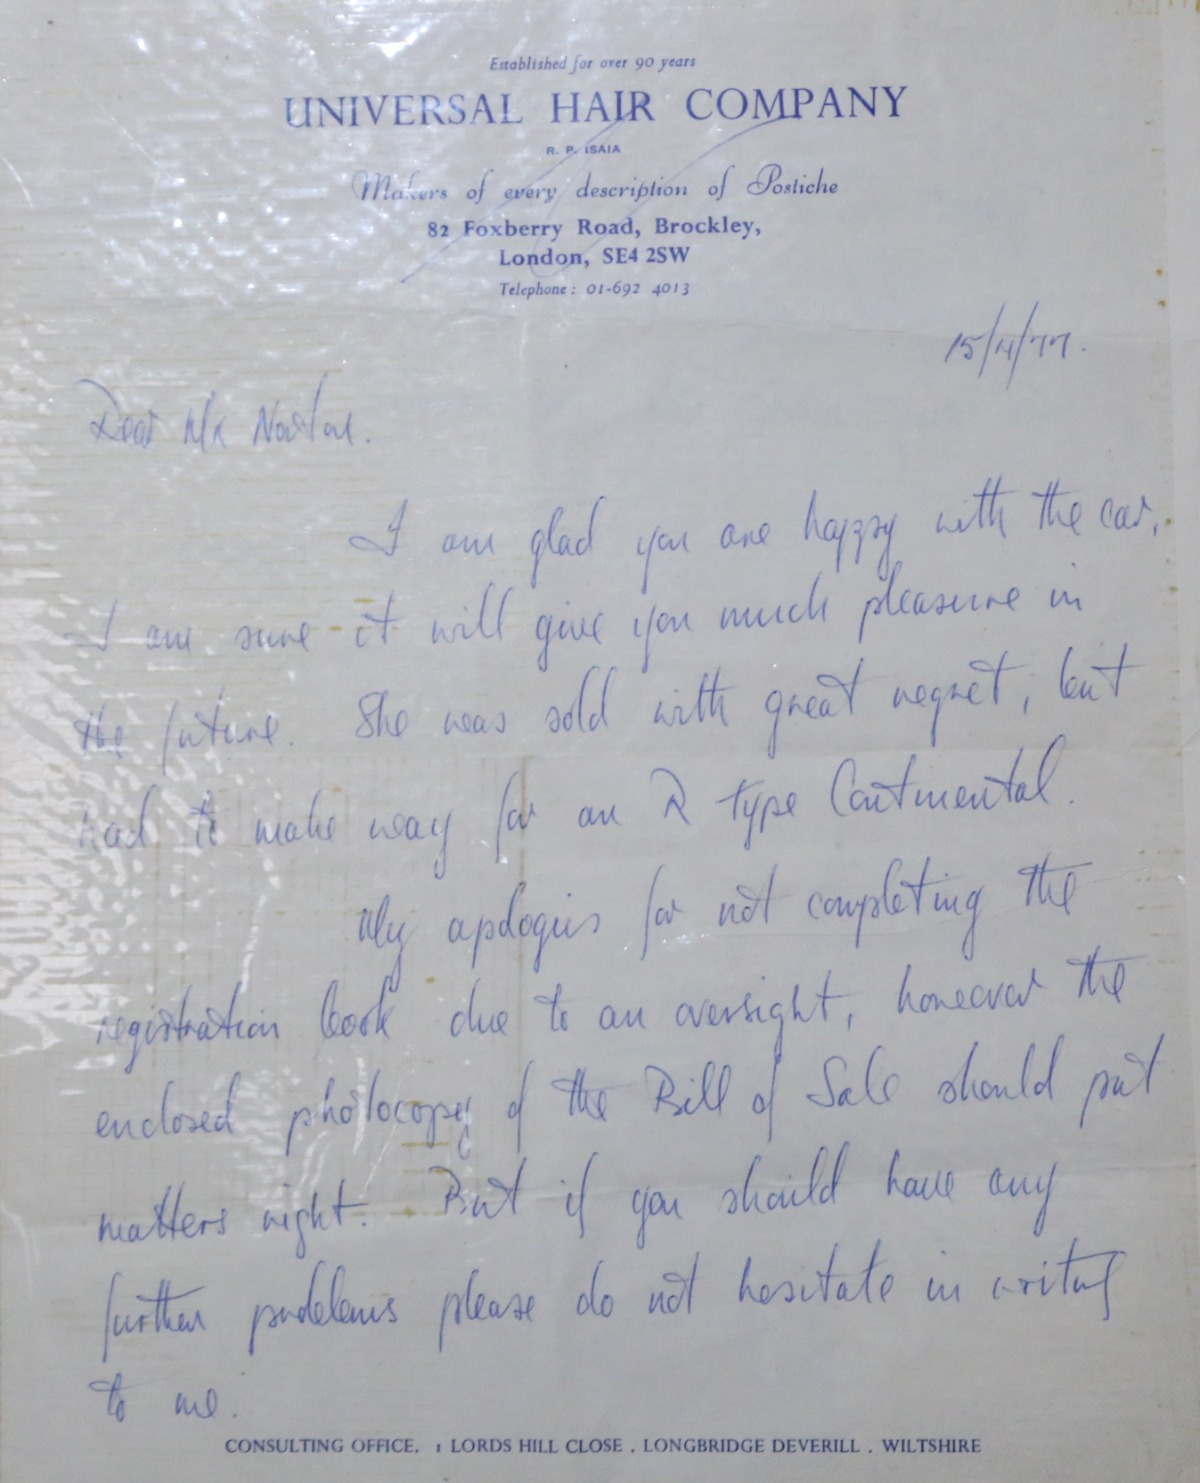 Established for over 90 years
UNIVERSAL HAIR COMPANY
R. P. ISAIA
Makers of every description of Postiche
82 Foxberry Road, Brockley,
London, SE4 2SW
Telephone: 01-692 4013
15/4/77.
Dear Mr Norton.
I am glad you are happy with the car.
I am sure it will give you much pleasure in
the future. She was sold with great regret, but
had to make way for an R type Continental.
My apologies for not completing the
registration book due to an oversight, however the
enclosed photocopy of the Bill of Sale should put
matters right. But if you should have any
further problems please do not hesitate in writing
to me.
CONSULTING OFFICE. 1 LORDS HILL CLOSE . LONGBRIDGE DEVERILL . WILTSHIRE